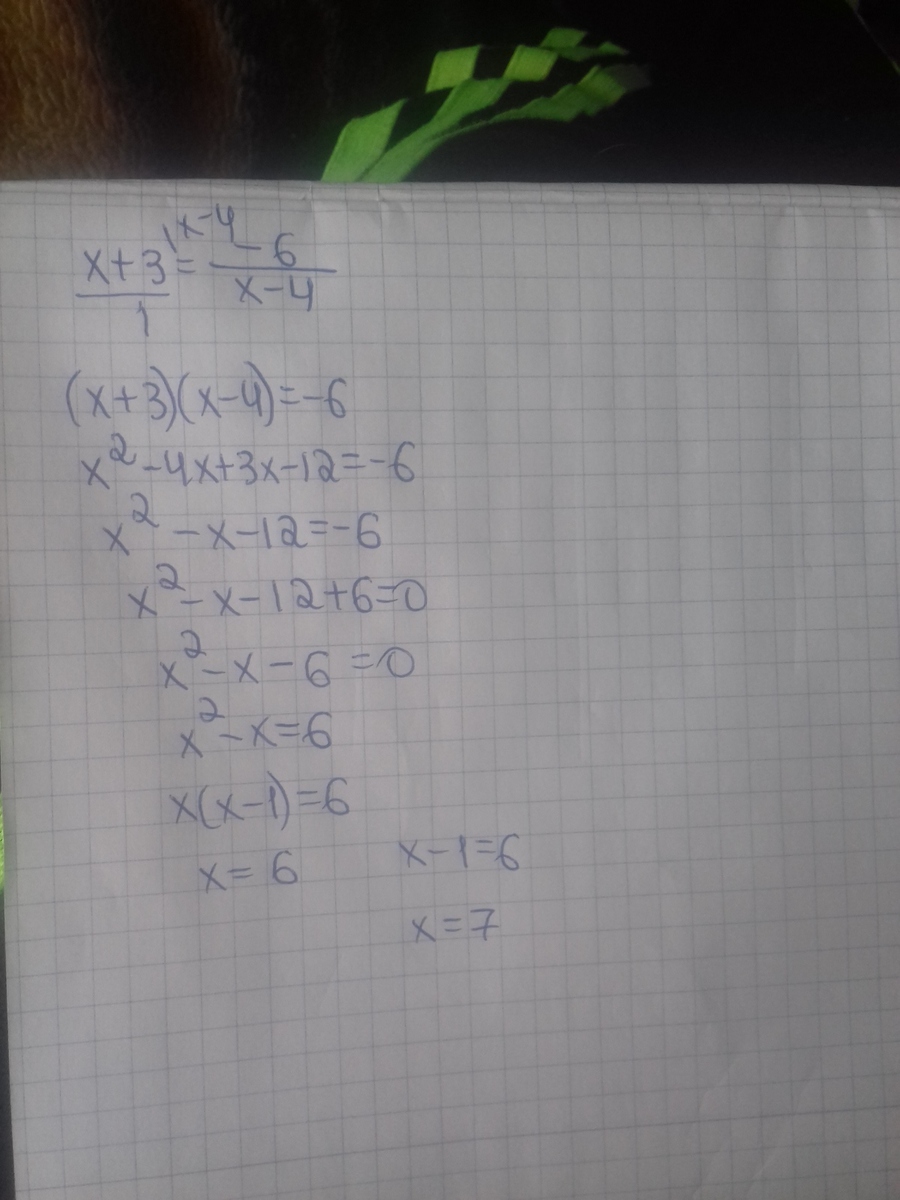 x+3 \x-4 = -6
1 x-4
(x+3)(x-4)=-6
x²-4x+3x-12=-6
x²-x-12=-6
x²-x-12+6=0
x²-x-6=0
x²-x=6
x(x-1)=6
x=6 x-1=6
x=7